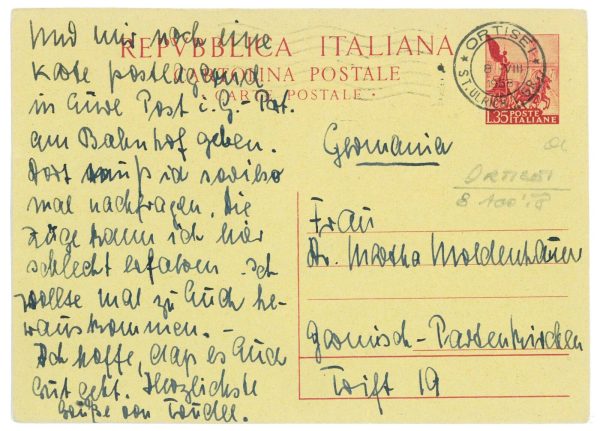 Und mir noch eine
Karte postlagernd
in Eure Post i. G.-Part.
am Bahnhof geben.
Dort muß ich sowieso
mal nachfragen. Die
Züge kann ich hier
schlecht erfahren. Ich
wollte mal zu Euch he-
rauskommen. –
Ich hoffe, daß es Euch
gut geht. Herzlichste
Grüße von
REPVBBLICA ITALIANA
CARTOLINA POSTALE
CARTE POSTALE
ORTISEI
ST. ULRICH
8 VIII
L.35 POSTE
ITALIANE
Germania
ORTISEI
Frau
Dr. Martha Moldenhauer
Garmisch-Partenkirchen
Trift 19